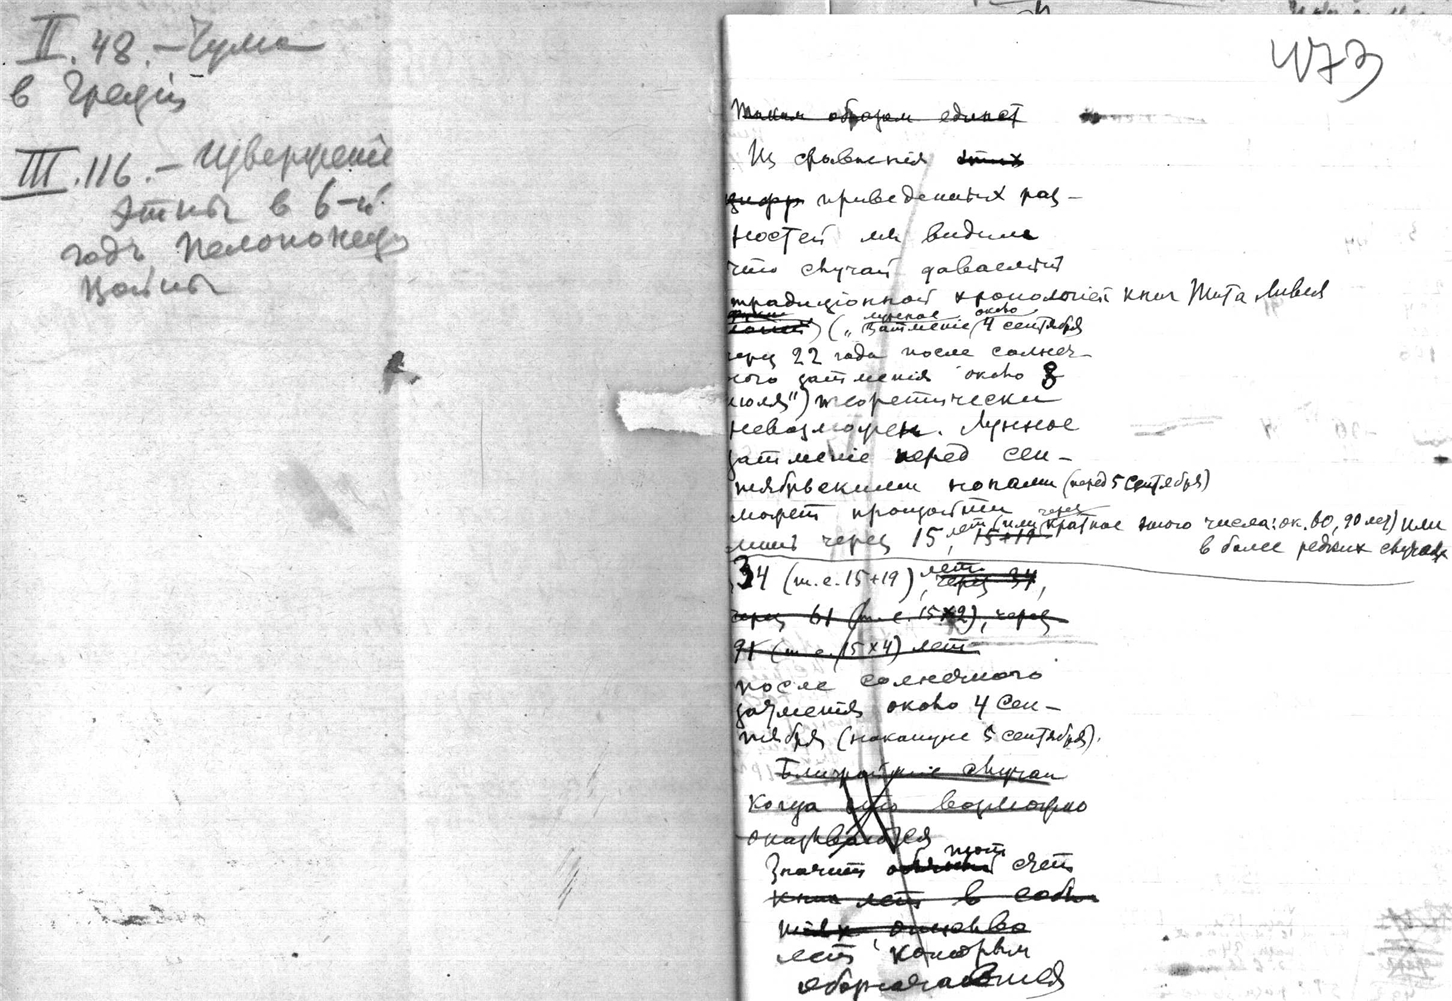 II. 48. – Чума
в Греціи
III. 116. – Изверженіе
Этны в 6-й
годъ Пелопонез
войны
473
Таким образом единст
Из сравненія этих
цифр приведенных раз-
ностей мы видим
что случай даваемый
традиціонной хронологіей книг Тита Ливия
("лунное затменіе около 4 сентября
через 22 года после солнеч-
ного затменія около 8
июля") теоретически
невозможен. Лунное
затменіе перед сен-
тябрьскими нонами (перед 5 сентября)
может произойти
лишь через 15 лет (или через кратное этого числа: ок. 60, 90 лет) или
в более редких случаях
34 (т.е. 15+19) лет, через 34,
через 61 (т.е. 15×2), через
91 (т.е. 15×4) лет
после солнечного
затменія около 4 сен-
тября (накануне 5 сентября).
Ближайшие случаи
когда это возможно
оказываются
Значит тот счет
книг лет в собы
лет которым
обозначаются